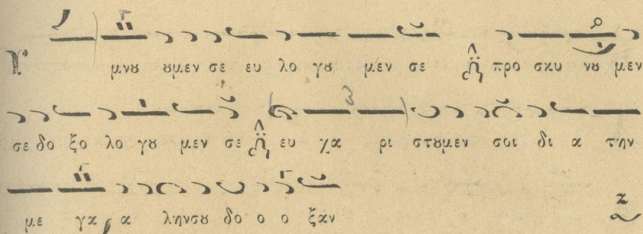 Υ μνȣ ȣμεν σε ευ λο γȣ μεν σε προ σκυ νȣ μεν
σε δο ξο λο γȣ μεν σε ευ χα ρι στȣμεν σοι δι α την
με γα α λην σȣ δο ο ο ξαν